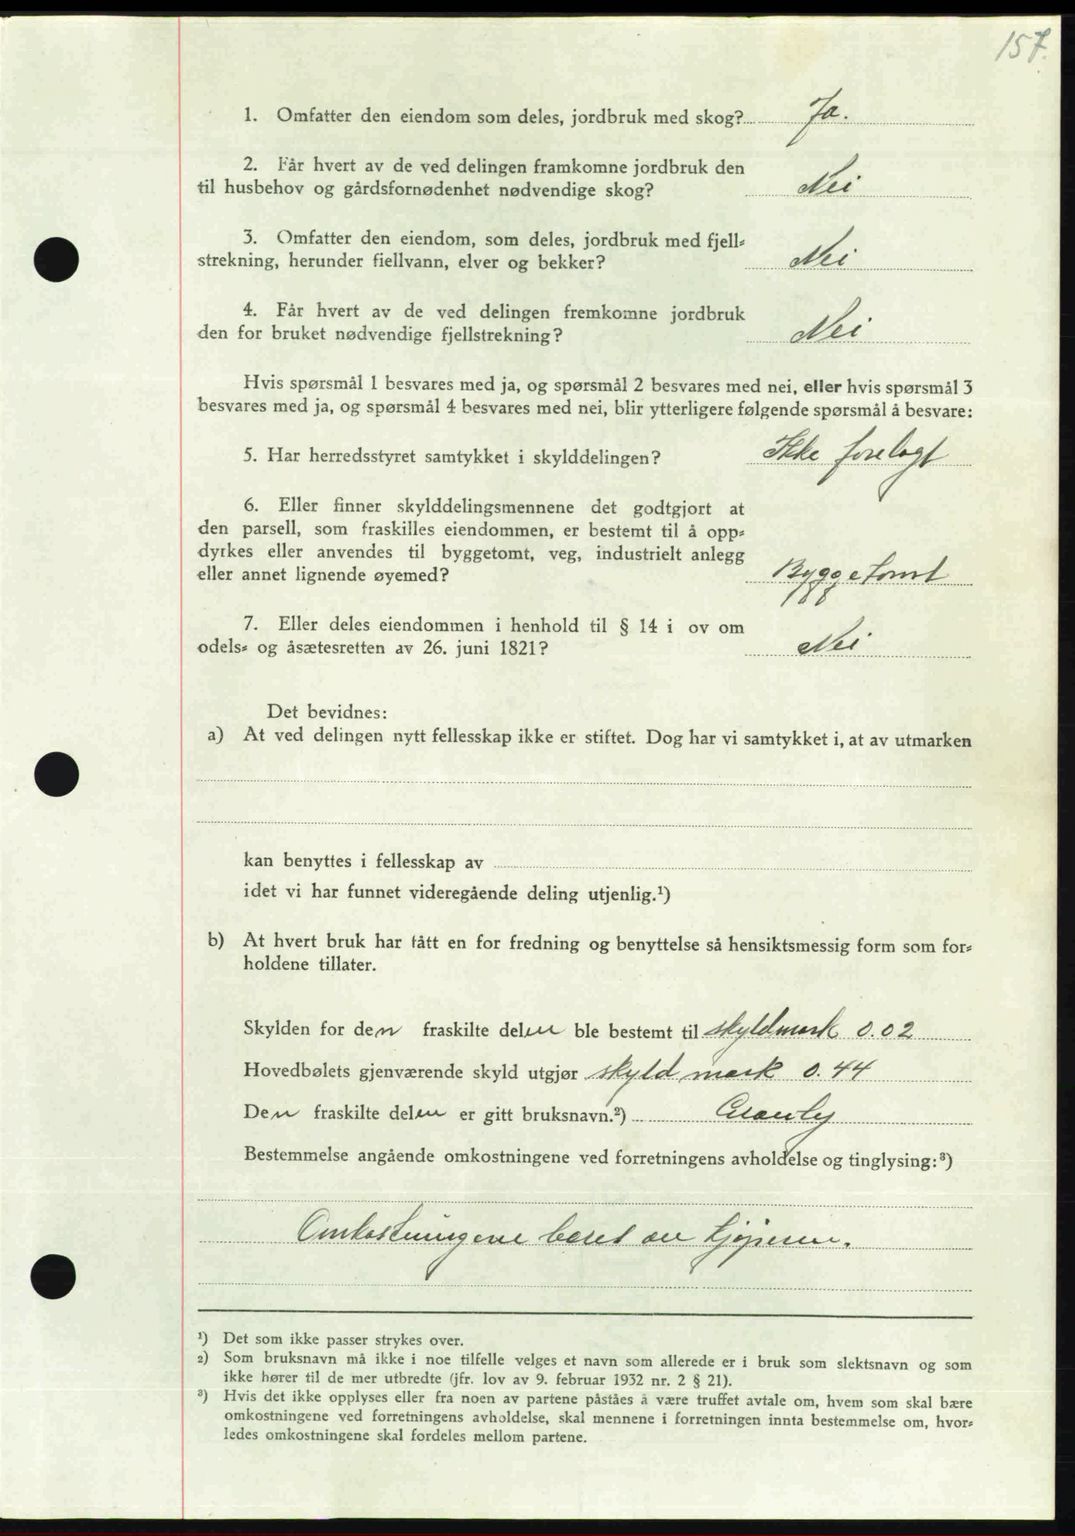 157.
1. Omfatter den eiendom som deles, jordbruk med skog? Ja.
2. Får hvert av de ved delingen framkomne jordbruk den
til husbehov og gårdsfornødenhet nødvendige skog? Nei
3. Omfatter den eiendom, som deles, jordbruk med fjell=
strekning, herunder fiellvann, elver og bekker? Nei
4. Får hvert av de ved delingen fremkomne jordbruk
den for bruket nødvendige fjellstrekning? Nei
Hvis spørsmål 1 besvares med ja, og spørsmål 2 besvares med nei, eller hvis spørsmål 3
besvares med ja, og spørsmål 4 besvares med nei, blir ytterligere følgende spørsmål å besvare:
5. Har herredsstyret samtykket i skylddelingen? Ikke forelagt
6. Eller finner skylddelingsmennene det godtgjort at
den parsell, som fraskilles eiendommen, er bestemt til å opp=
dyrkes eller anvendes til byggetomt, veg, industrielt anlegg
eller annet lignende øyemed? Byggetomt
7. Eller deles eiendommen i henhold til § 14 i ov om
odels= og åsætesretten av 26. juni 1821? Nei
Det bevidnes:
a) At ved delingen nytt fellesskap ikke er stiftet. Dog har vi samtykket i, at av utmarken
kan benyttes i fellesskap av
idet vi har funnet videregående deling utjenlig.¹)
b) At hvert bruk har fått en for fredning og benyttelse så hensiktsmessig form som for=
holdene tillater.
Skylden for den fraskilte delen ble bestemt til skyldmark 0.02
Hovedbølets gjenværende skyld utgjør skyld mark 0.44
Den fraskilte delen er gitt bruksnavn.²)
Bestemmelse angående omkostningene ved forretningens avholdelse og tinglysing:³)
Omkostningene bæres av kjøperen.
¹) Det som ikke passer strykes over.
²) Som bruksnavn må ikke i noe tilfelle velges et navn som allerede er i bruk som slektsnavn og som
ikke hører til de mer utbredte (jfr. lov av 9. februar 1932 nr. 2 § 21).
³) Hvis det ikke opplyses eller fra noen av partene påståes å være truffet avtale om, hvem som skal bære
omkostningene ved forretningens avholdelse, skal mennene i forretningen innta bestemmelse om, hvor=
ledes omkostningene skal fordeles mellom partene.